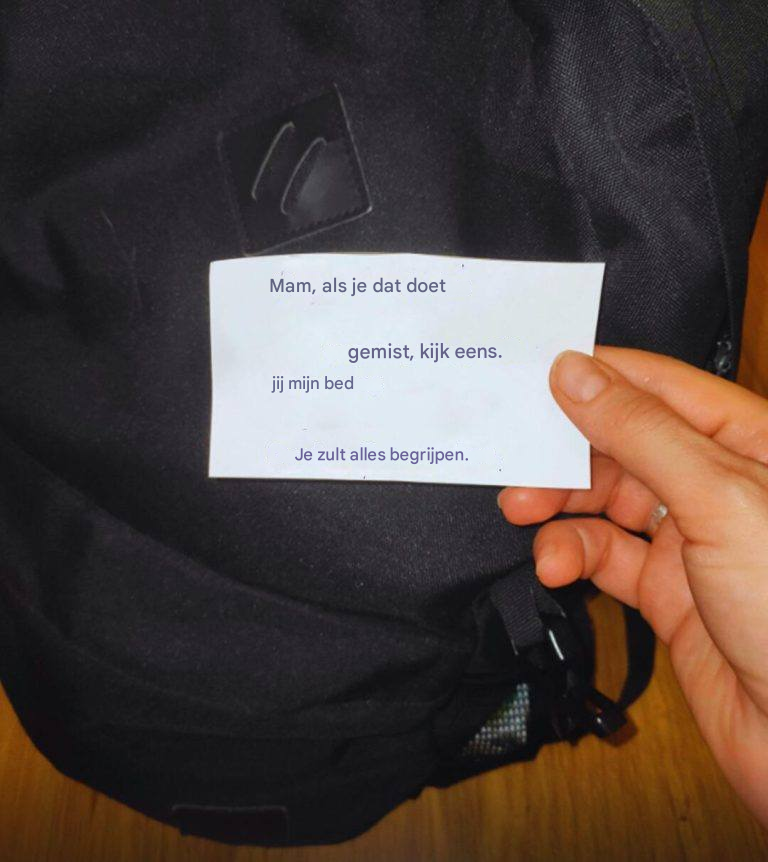 Mam, als je dat doet
gemist, kijk eens.
jij mijn bed
Je zult alles begrijpen.